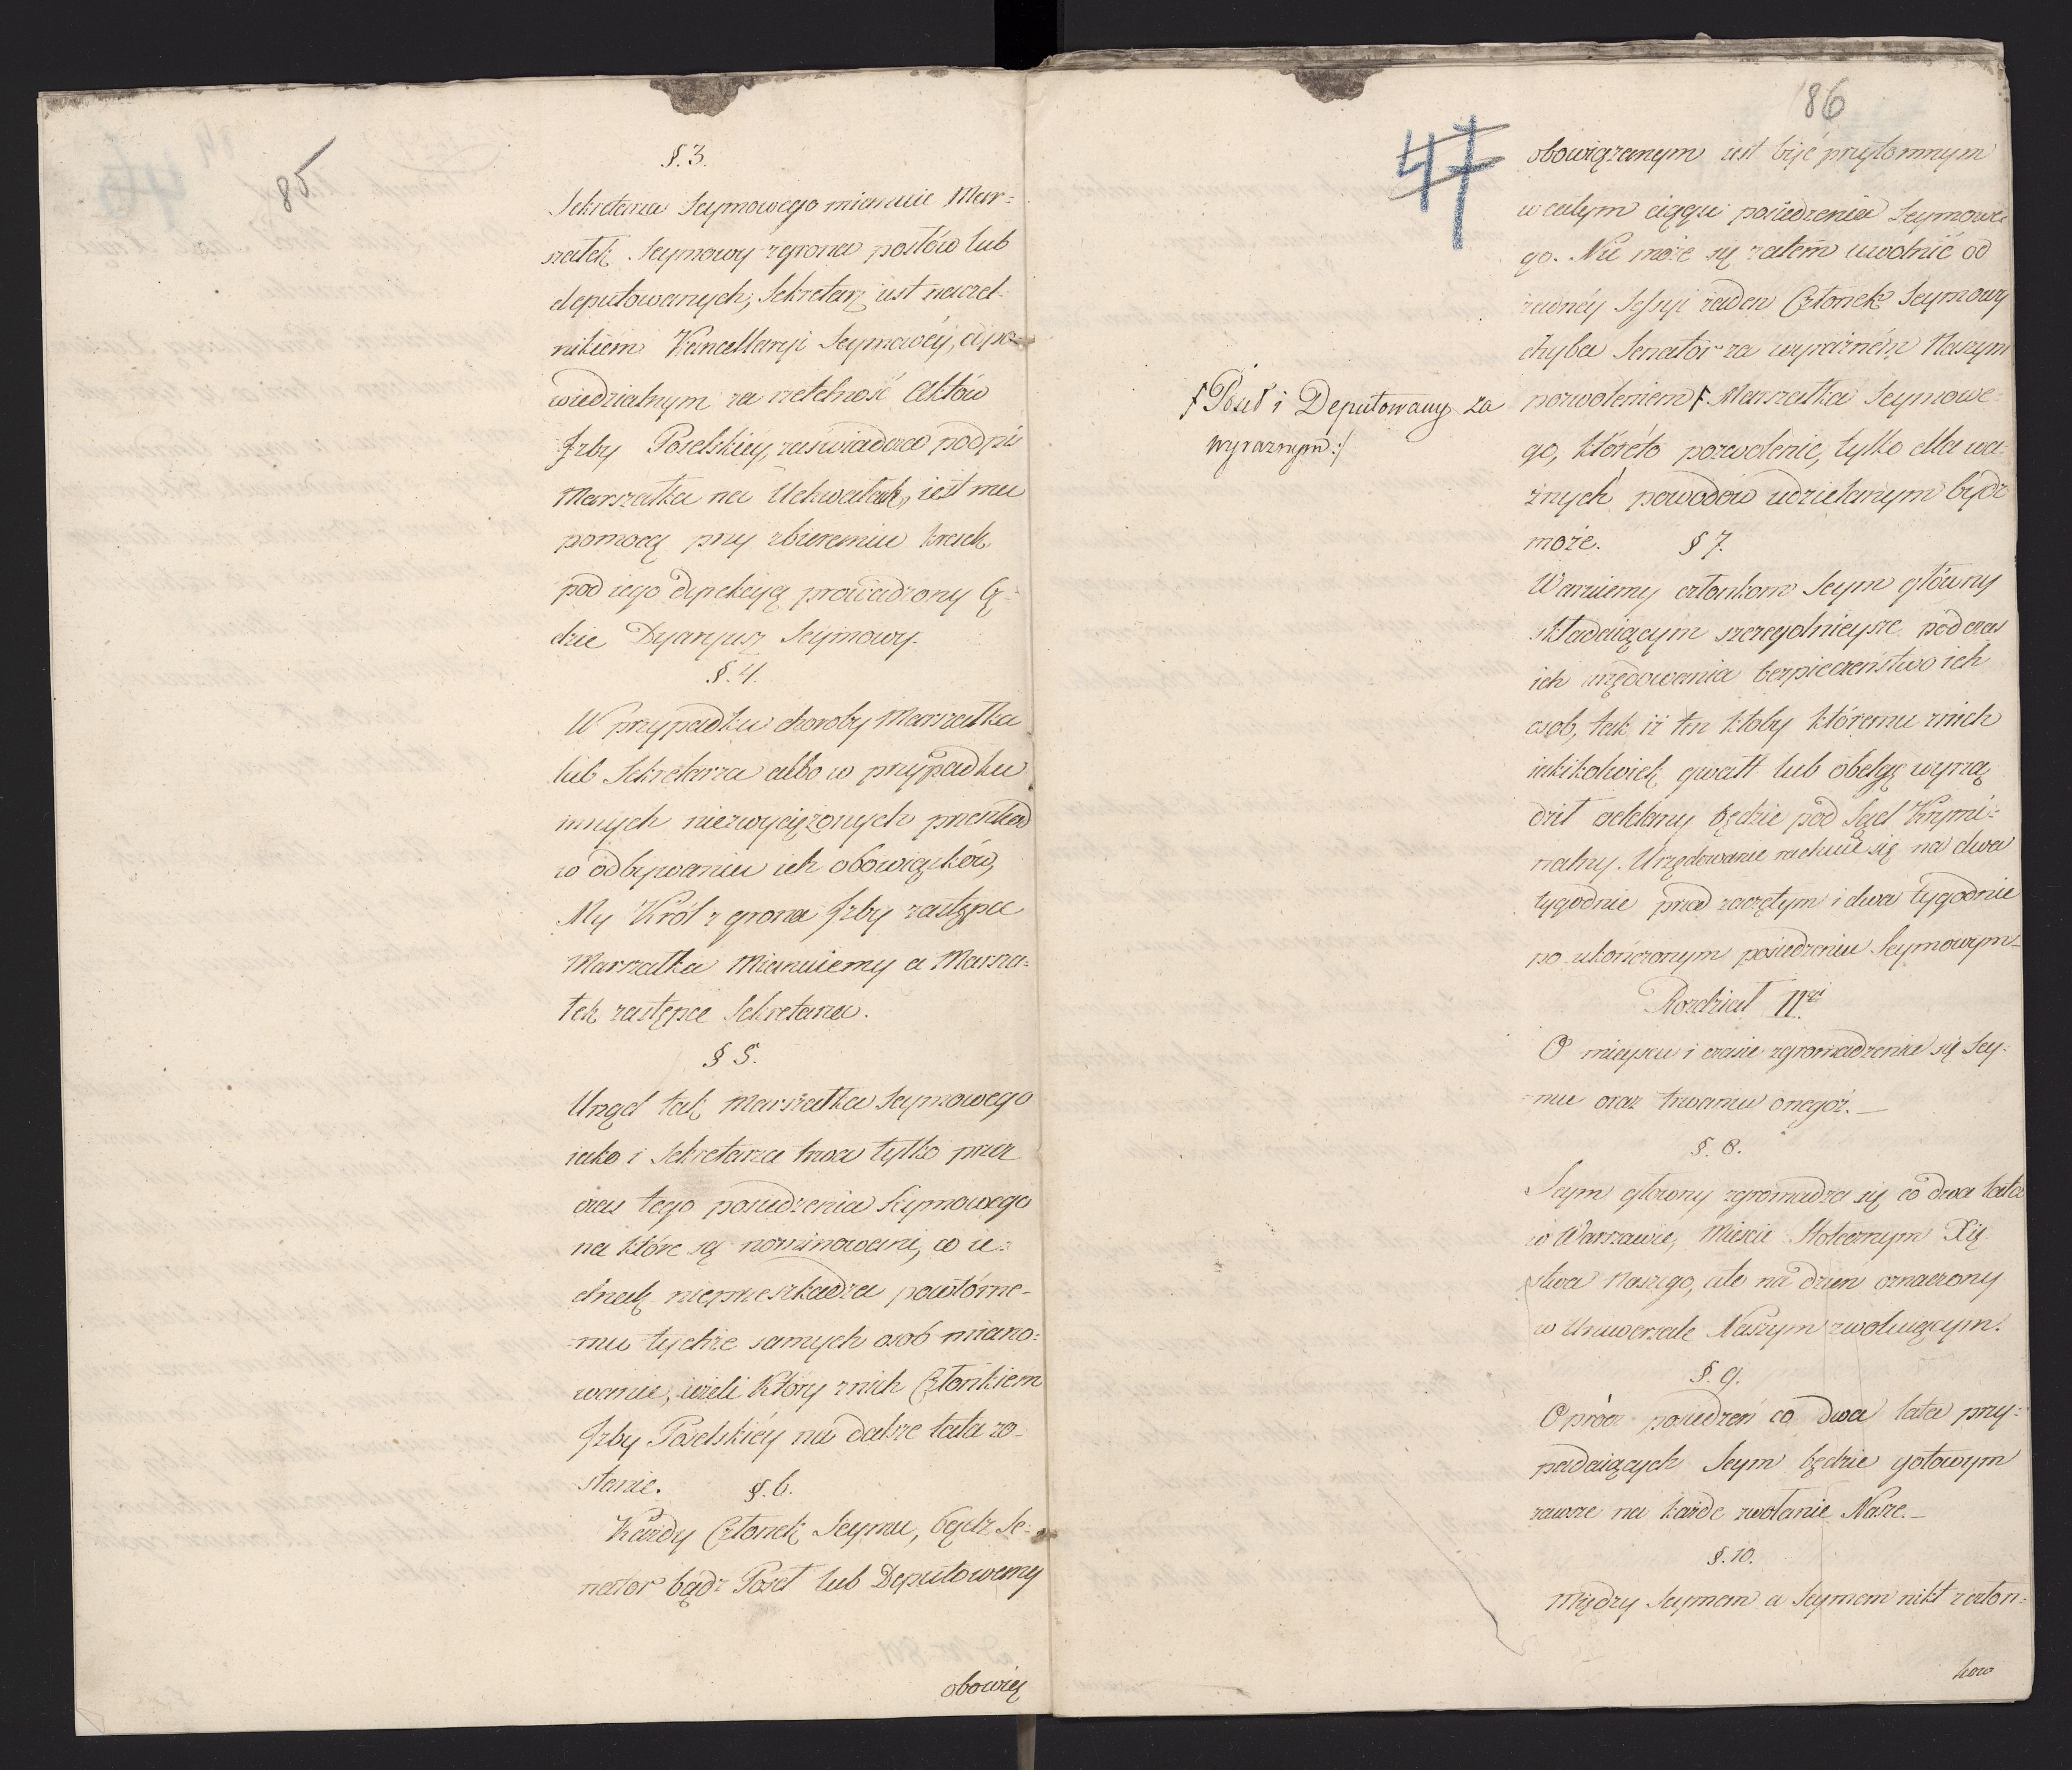 85
§.3.
Sekretarza Seymowego mianuie Mar=
szałek Seymowy z grona posłów lub
deputowanych, Sekretarz iest naczel=
nikiem Kancellaryi Seymowéy, odpo=
wiedzialnym za rzetelność Aktów
Jzby Poselskiéy, zaświadcza podpis
Marszałka na Uchwałach, iest mu
pomocą przy zbieraniu kresek,
pod iego dyrekcyą prowadzony bę=
dzie Dyaryusz Seymowy.
§.4.
W przypadku choroby Marszałka
lub Sekretarza albo w przypadku
innych niezwyciężonych przeszkod
w odbywaniu ich obowiązków,
My Król z grona Jzby zastępce
Marszałka Mianuiemy a Marsza=
łek zastępce Sekretarza.
§ 5.
Urząd tak Marszałka Seymowego
iako i Sekretarza trwa tylko przez
czas tego posiedzenia Seymowego
na które są nominowani, co ie=
dnak nieprzeszkadza powtórne=
mu tychże samych osob miano=
wanie, ieżeli który z nich Członkiem
Jzby Poselskiéy na dalsze lata zo=
stanie. §.6.
Każdy Członek Seymu, bądz Se=
nator bądz Poseł lub Deputowany
obowią
86
47
obowiązanym iest byc przytomnym
w całym ciągu posiedzenia Seymowe=
go. Nie może się zatem uwolnić od
żadnéy Sessyi żaden Członek Seymowy
chyba Senator za wyraźném Naszym
pozwoleniem Ƒ Marszałka Seymowe=
Ƒ Poseł i Deputowany za
wyraznym :/
go, któréto pozwolenie, tylko dla wa=
żnych powodów udzielanym bydz
może. § 7.
Waruiemy członkom Seym główny
składaiącym szczegolnieysze podczas
ich urzędowania bezpieczeństwo ich
osob, tak iż ten ktoby któremu z nich
iakikolwiek gwałt lub obelgę wyrzą
dził oddany będzie pod Sąd Krymi=
nalny. Urzędowanie rachuie się na dwa
tygodnie przed zaczętym i dwa tygodnie
po ukończonym posiedzeniu Seymowym
Rozdział II.gi
O mieyscu i czasie zgromadzenia się Sey=
mu oraz trwaniu onegoż.
§.8.
Seym główny zgromadza się co dwa lata
w Warszawie, Mieście Stołecznym Xię
stwa Naszego, ale na dzien oznaczony
w Uniwersale Naszym zwołuiącym.
§.9.
Oprócz posiedzeń co dwa lata przy=
padaiących Seym będzie gotowym
zawsze na każde zwołanie Nasze.
§.10.
Między Seymem a Seymem nikt z człon=
kow